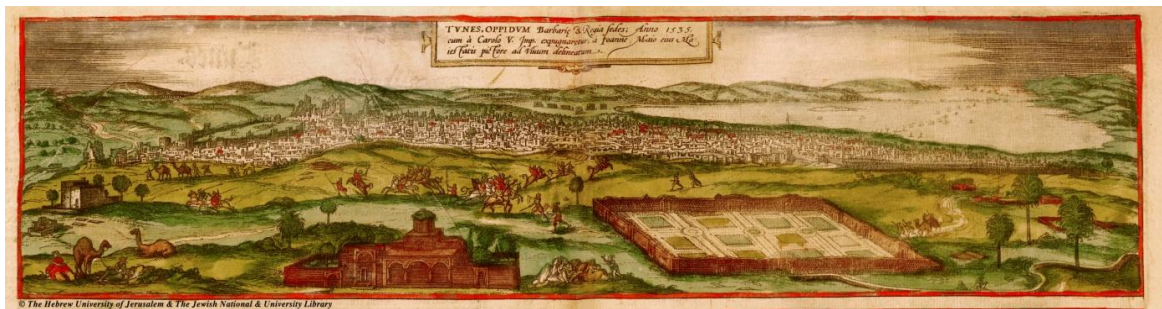 TVNES, OPPIDVM Barbarię & Regia sedes; Anno 1535.
cum à Carolo V. Imp. expugnaretur, à Joanne Maio eius Ma
iestatis pictore ad viuum delineatum.
© The Hebrew University of Jerusalem & The Jewish National & University Library